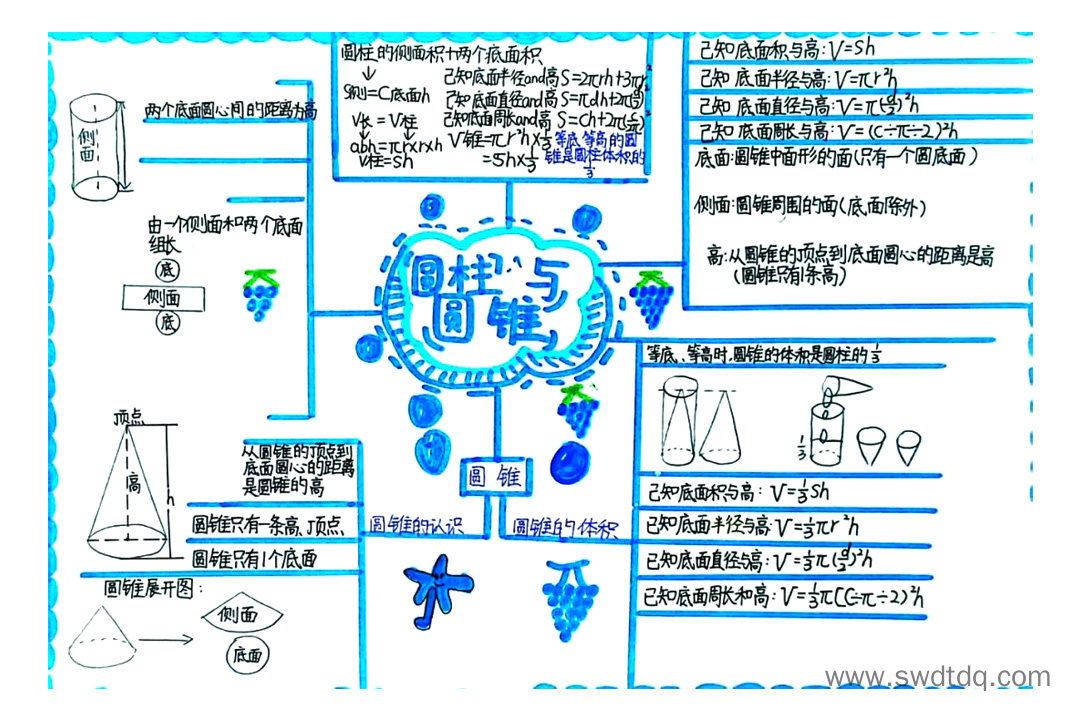 圆柱与
圆锥
两个底面圆心间的距离为高
侧
面
由一个侧面和两个底面
组长
底
侧面
底
圆柱的侧面积+两个底面积
↓
S侧=C底面h
V长=V柱
↓ ↓ ↓
abh=πr×r×h
V柱=Sh
已知底面半径and高 S=2πrh+3πr²
已知底面直径and高 S=πdh+2π(d/2)²
已知底面周长and高 S=ch+2π(
V锥=πr²h×1/3
=Sh×1/3
等底等高的圆
锥是圆柱体积的
1/3
已知底面积与高:V=Sh
已知底面半径与高:V=πr²h
已知底面直径与高:V=π(d/2)²h
已知底面周长与高:V=(C÷π÷2)²h
底面:圆锥中面形的面(只有一个圆底面)
侧面:圆锥周围的面(底面除外)
高:从圆锥的顶点到底面圆心的距离是高
(圆锥只有1条高)
圆锥
圆锥的认识
圆锥的体积
顶点
高
h
从圆锥的顶点到
底面圆心的距离
是圆锥的高
圆锥只有一条高、1顶点
圆锥只有1个底面
圆锥展开图:
侧面
底面
等底、等高时,圆锥的体积是圆柱的1/3
1/3
已知底面积与高:V=1/3Sh
已知底面半径与高V=1/3πr²h
已知底面直径与高:V=1/3π(d/2)²h
已知底面周长和高:V=1/3π(C÷π÷2)²h
www.swdtdq.com